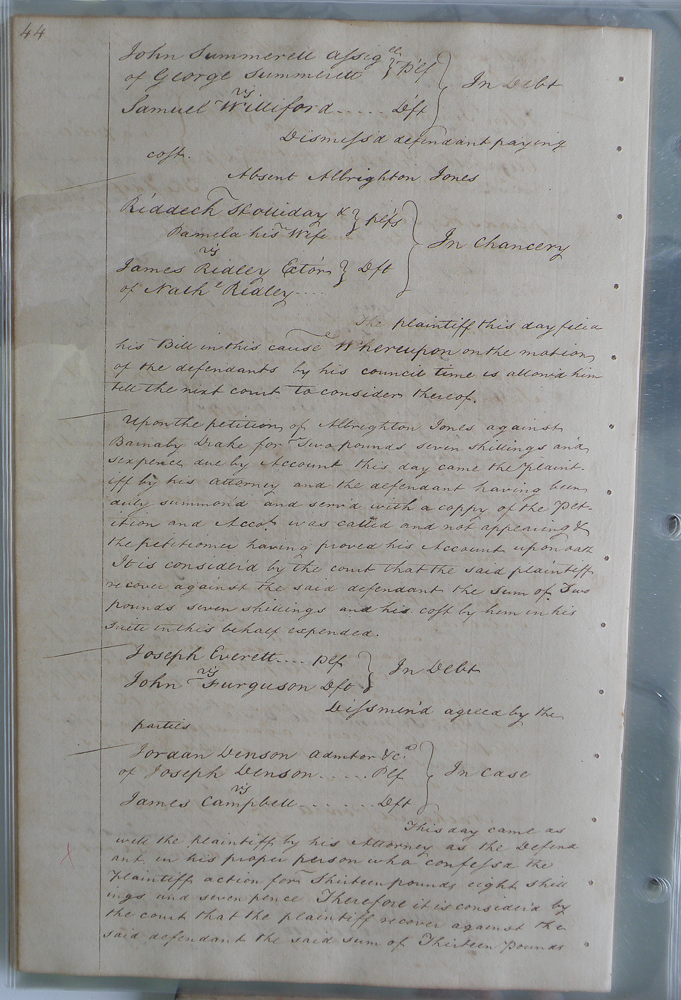 44
John Summerell assigee
of George Summerell } Plf } In Debt
vs
Samuel Williford ..... Dft
Dismiss'd defendant paying
cost.
Absent Albrighton Jones
Riddeck Holliday & } plfs
Pamela his Wife } In Chancery
vs
James Ridley Extor } Dft
of Nathl Ridley ....
The plaintiff this day filed
his Bill in this cause Whereupon on the motion
of the defendants by his council time is allow'd him
till the next court to consider thereof.
Upon the petition of Albrighton Jones against
Barnaby Drake for Two pounds seven shillings and
sixpence due by Account this day came the Plaint-
iff by his attorney and the defendant having been
duly summon'd and serv'd with a coppy of the Pet-
ition and Accot. was called and not appearing &
the petitioner having proved his Account upon oath
It is consider'd by the court that the said plaintiff
recover against the said defendant the sum of Two
pounds seven shillings and his cost by him in his
suite in this behalf expended.
Joseph Everett .... Plf } In Debt
vs
John Furguson Dft
Dissmin'd agreed by the
parties
Jordan Denson admtor &c.
of Joseph Denson ..... Plf } In Case
vs
James Campbell ....... Dft
This day came as
well the plaintiff by his Attorney as the Defend
ant in his proper person who confessd the
plaintiffs action for Thirteen pounds eight shill
ings and seven pence Therefore it is consider'd by
the court that the plaintiff recover against the
said defendant the said sum of Thirteen Pounds